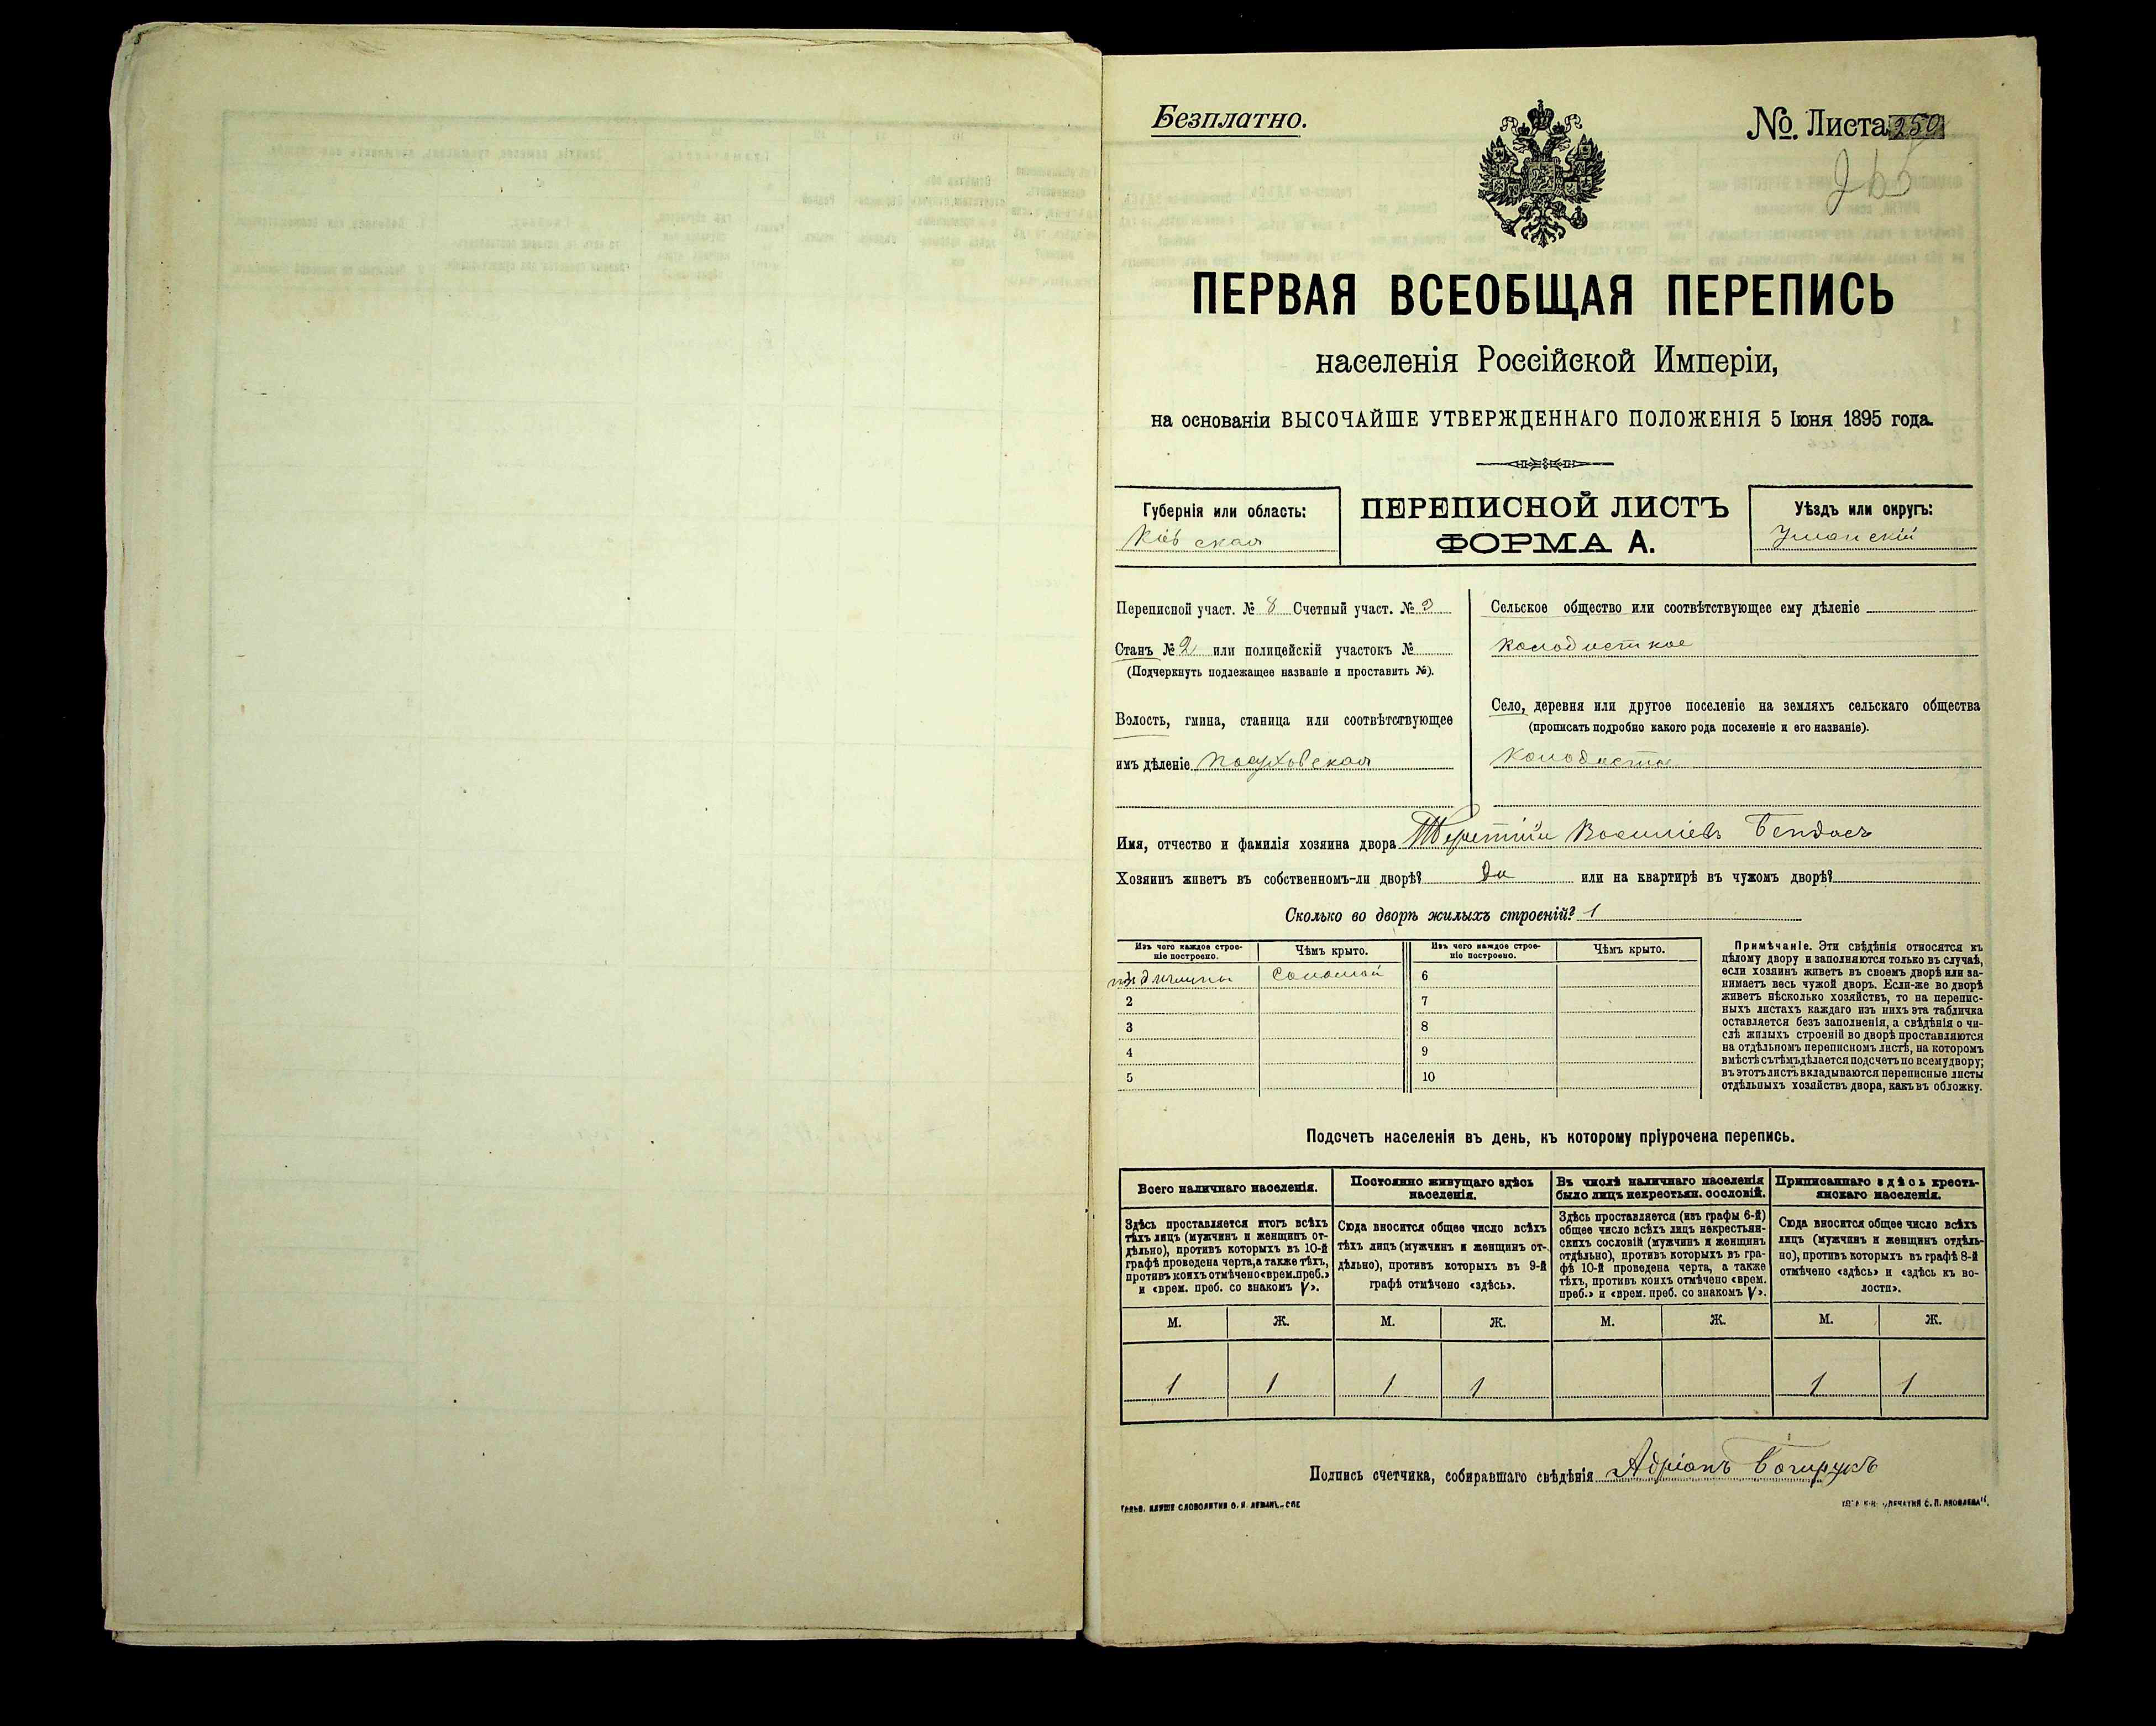 Безплатно.
№. Листа 250
265
ПЕРВАЯ ВСЕОБЩАЯ ПЕРЕПИСЬ
населенія Россійской Имперіи,
на основаніи ВЫСОЧАЙШЕ УТВЕРЖДЕННАГО ПОЛОЖЕНІЯ 5 Іюня 1895 года.
Губернія или область:
Кіевская
ПЕРЕПИСНОЙ ЛИСТЪ
ФОРМА А.
Уѣздъ или округъ:
Уманскій
Переписной участ. № 8 Счетный участ. № 3
Станъ № 2 или полицейскій участокъ №
(Подчеркнуть подлежащее названіе и проставить №).
Волость, гмина, станица или соотвѣтствующее
имъ дѣленіе
Сельское общество или соотвѣтствующее ему дѣленіе
Колодисткое
Село, деревня или другое поселеніе на земляхъ сельскаго общества
(прописать подробно какого рода поселеніе и его названіе).
Колодистое
Имя, отчество и фамилія хозяина двора Терентій Василіевъ Бендасъ
Хозяинъ живетъ въ собственномъ-ли дворѣ? Да или на квартирѣ въ чужомъ дворѣ?
Сколько во дворѣ жилыхъ строеній? 1
Изъ чего каждое строе-
ніе построено.
Чѣмъ крыто.
Изъ чего каждое строе-
ніе построено.
Чѣмъ крыто.
соломой
6
2
7
3
8
4
9
5
10
Примѣчаніе. Эти свѣдѣнія относятся къ
цѣлому двору и заполняются только въ случаѣ,
если хозяинъ живетъ въ своемъ дворѣ или за-
нимаетъ весь чужой дворъ. Если-же во дворѣ
живетъ нѣсколько хозяйствъ, то на перепис-
ныхъ листахъ каждаго изъ нихъ эта табличка
оставляется безъ заполненія, а свѣдѣнія о чи-
слѣ жилыхъ строеній во дворѣ проставляются
на отдѣльномъ переписномъ листѣ, на которомъ
вмѣстѣ съ тѣмъ дѣлается подсчетъ по всему двору;
въ этотъ листъ вкладываются переписные листы
отдѣльныхъ хозяйствъ двора, какъ въ обложку.
Подсчетъ населенія въ день, къ которому пріурочена перепись.
Всего наличнаго населенія.
Постоянно живущаго здѣсь
населенія.
Въ числѣ наличнаго населенія
было лицъ некрестьян. сословій.
Приписаннаго здѣсь кресть-
янскаго населенія.
Здѣсь проставляется итогъ всѣхъ
тѣхъ лицъ (мужчинъ и женщинъ от-
дѣльно), противъ которыхъ въ 10-й
графѣ проведена черта, а также тѣхъ,
противъ коихъ отмѣчено «врем. преб.»
и «врем. преб. со знакомъ V».
Сюда вносится общее число всѣхъ
тѣхъ лицъ (мужчинъ и женщинъ от-
дѣльно), противъ которыхъ въ 9-й
графѣ отмѣчено «здѣсь».
Здѣсь проставляется (изъ графы 6-й)
общее число всѣхъ лицъ некрестьян-
скихъ сословій (мужчинъ и женщинъ
отдѣльно), противъ которыхъ въ гра-
фѣ 10-й проведена черта, а также
тѣхъ, противъ коихъ отмѣчено «врем.
преб.» и «врем. преб. со знакомъ V».
Сюда вносится общее число всѣхъ
лицъ (мужчинъ и женщинъ отдѣль-
но), противъ которыхъ въ графѣ 8-й
отмѣчено «здѣсь» и «здѣсь къ во-
лости».
М. Ж. М. Ж. М. Ж. М. Ж.
1 1 1 1 1 1
Подпись счетчика, собиравшаго свѣдѣнія Адріанъ